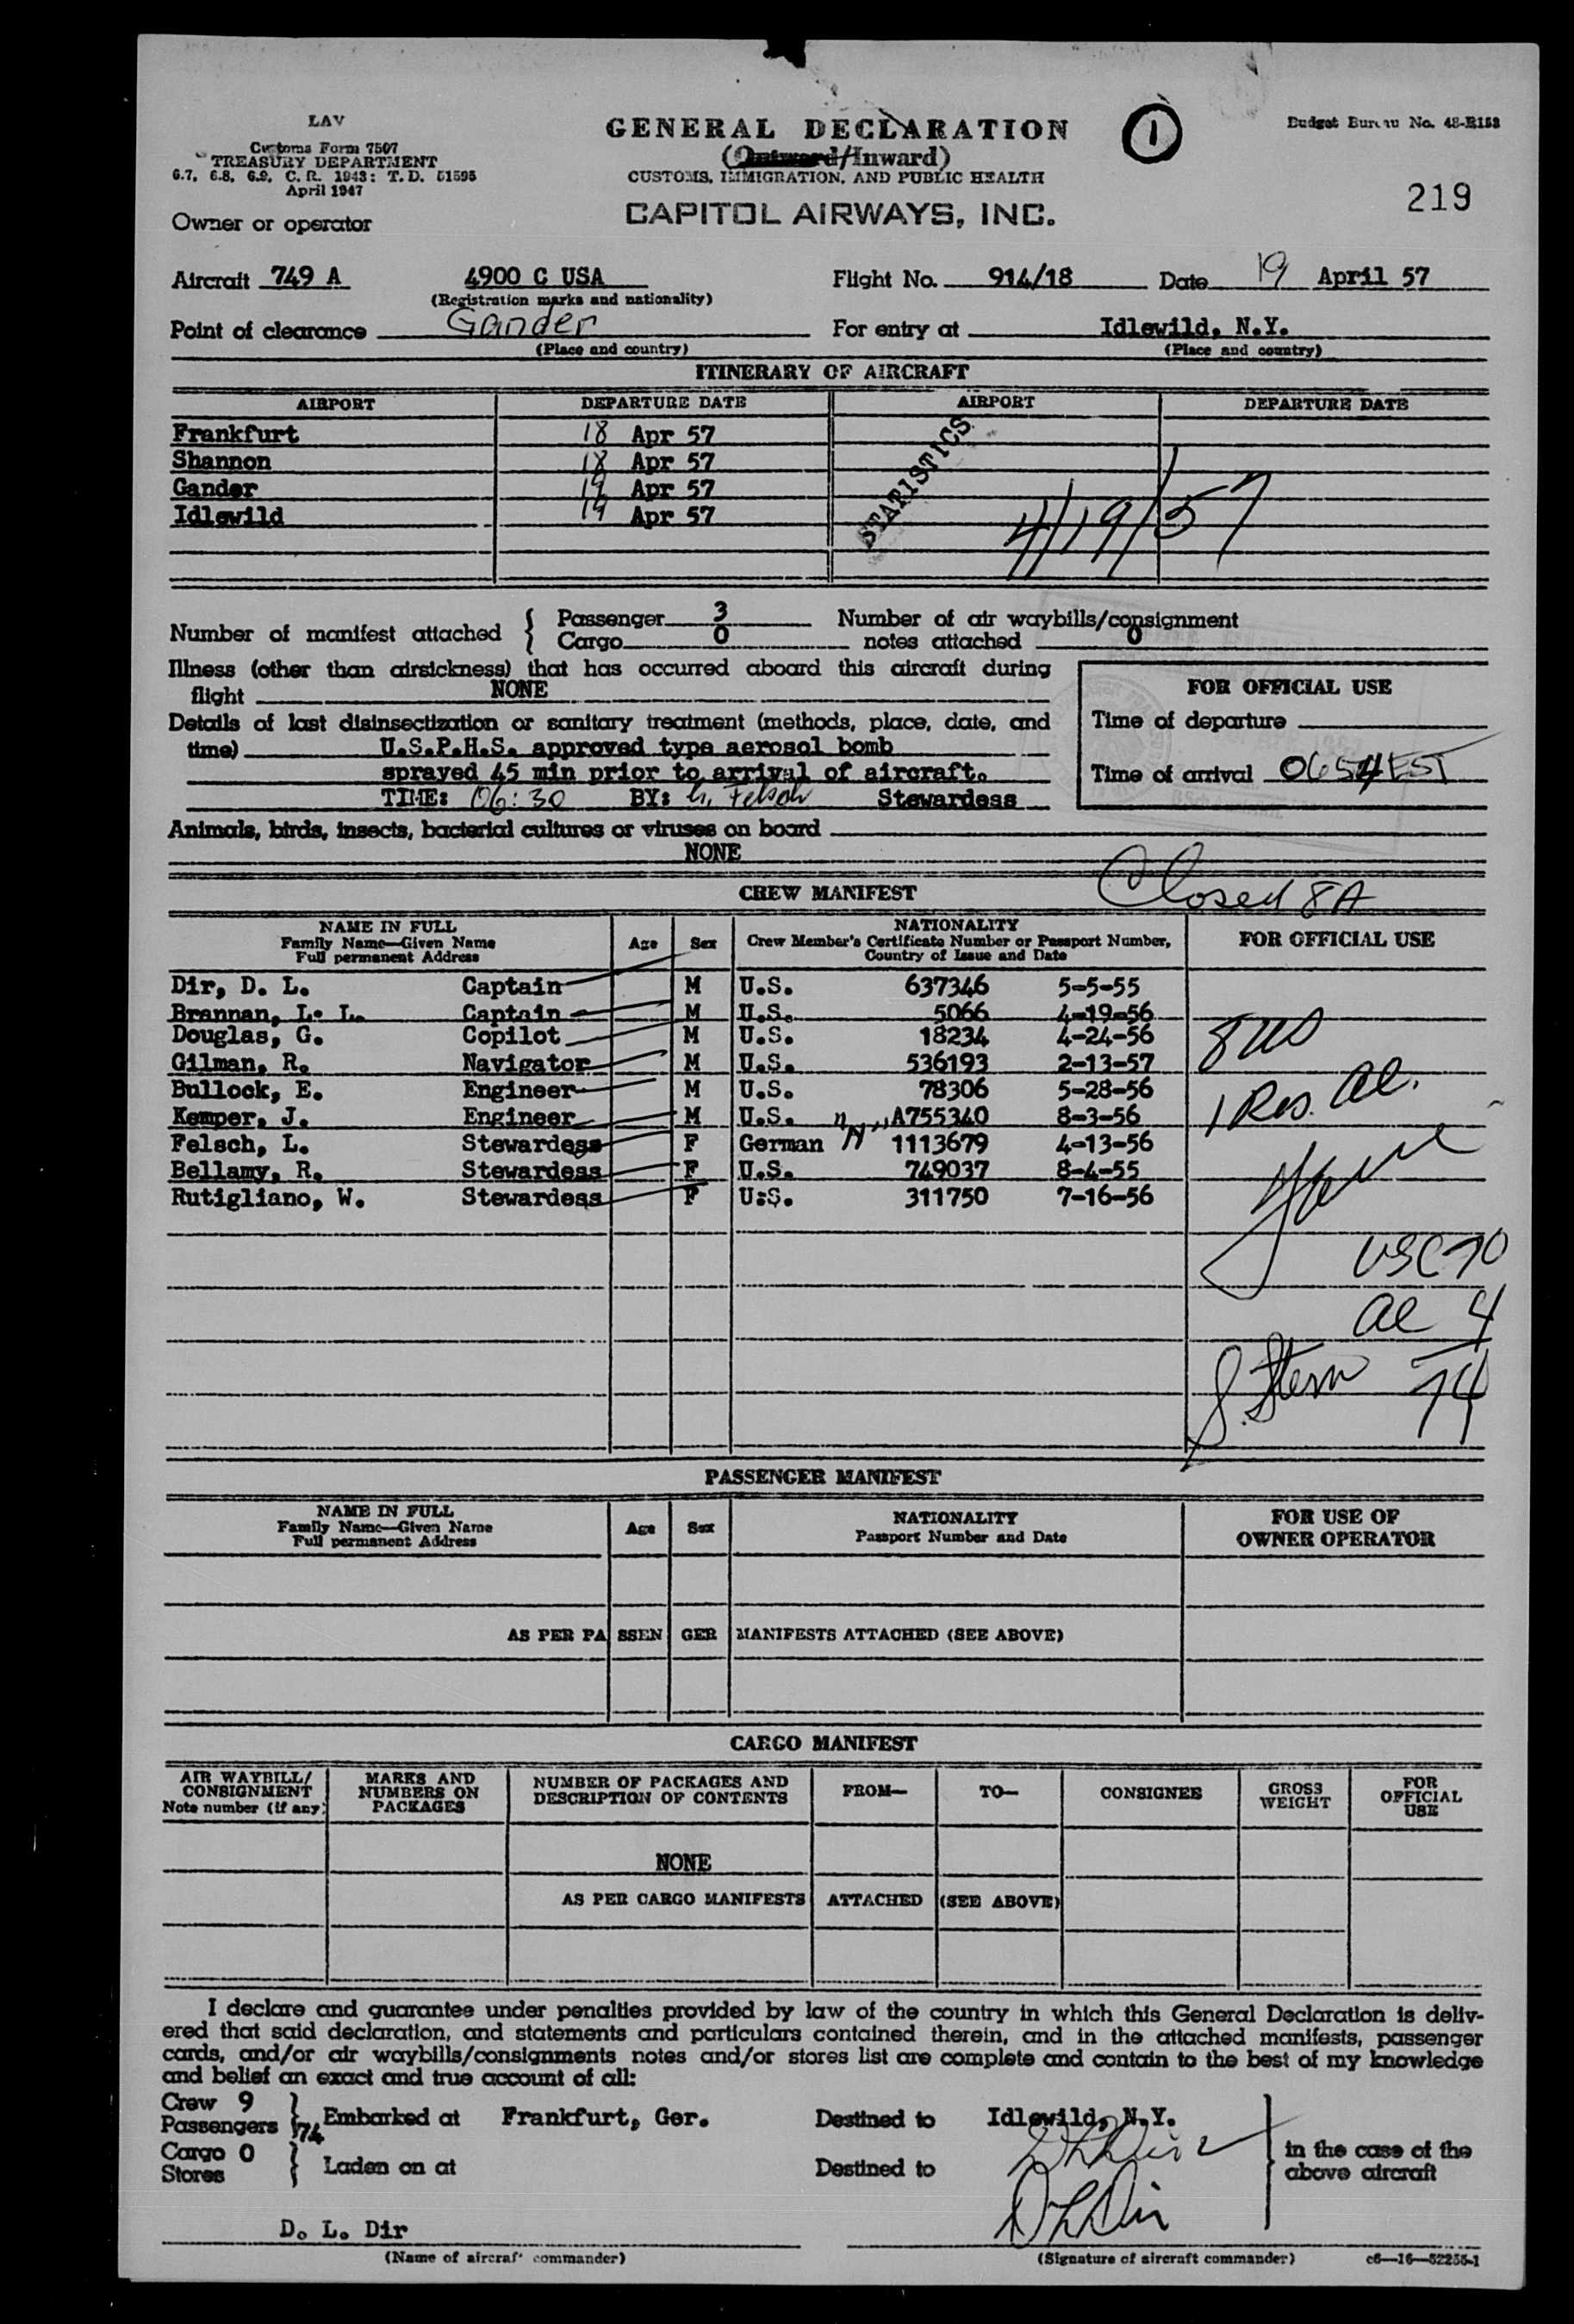 LAV
Customs Form 7507
TREASURY DEPARTMENT
6.7, 6.8, 6.9, C. R. 1943: T. D. 51595
April 1947
GENERAL DECLARATION
(Outward/Inward)
CUSTOMS, IMMIGRATION, AND PUBLIC HEALTH
CAPITOL AIRWAYS, INC.
1
Budget Bureau No. 48-R153
219
Owner or operator
Aircraft 749 A 4900 C USA Flight No. 914/18 Date 19 April 57
(Registration marks and nationality)
Point of clearance Gander For entry at Idlewild, N.Y.
(Place and country) (Place and country)
ITINERARY OF AIRCRAFT
AIRPORT DEPARTURE DATE AIRPORT DEPARTURE DATE
Frankfurt 18 Apr 57
Shannon 18 Apr 57
Gander 19 Apr 57
Idlewild 19 Apr 57
STATISTICS
4/19/57
Number of manifest attached { Passenger 3 Number of air waybills/consignment
Cargo 0 notes attached 0
Illness (other than airsickness) that has occurred aboard this aircraft during
flight NONE
Details of last disinsectization or sanitary treatment (methods, place, date, and
time) U.S.P.H.S. approved type aerosol bomb
sprayed 45 min prior to arrival of aircraft.
TIME: 06:30 BY: L. Felsch Stewardess
FOR OFFICIAL USE
Time of departure
Time of arrival 0654 EST
Animals, birds, insects, bacterial cultures or viruses on board
NONE
Closed 8A
CREW MANIFEST
NAME IN FULL
Family Name—Given Name
Full permanent Address
Age
Sex
NATIONALITY
Crew Member's Certificate Number or Passport Number,
Country of Issue and Date
FOR OFFICIAL USE
Dir, D. L. Captain M U.S. 637346 5-5-55
Brannan, L. L. Captain M U.S. 5066 4-19-56
Douglas, G. Copilot M U.S. 18234 4-24-56
Gilman, R. Navigator M U.S. 536193 2-13-57
Bullock, E. Engineer M U.S. 78306 5-28-56
Kemper, J. Engineer M U.S. A755340 8-3-56
Felsch, L. Stewardess F German 1113679 4-13-56
Bellamy, R. Stewardess F U.S. 749037 8-4-55
Rutigliano, W. Stewardess F U:S. 311750 7-16-56
1 Res. Al.
USC 70
Al 4
S. Stern 74
PASSENGER MANIFEST
NAME IN FULL
Family Name—Given Name
Full permanent Address
Age
Sex
NATIONALITY
Passport Number and Date
FOR USE OF
OWNER OPERATOR
AS PER PASSENGER MANIFESTS ATTACHED (SEE ABOVE)
CARGO MANIFEST
AIR WAYBILL/
CONSIGNMENT
Note number (if any)
MARKS AND
NUMBERS ON
PACKAGES
NUMBER OF PACKAGES AND
DESCRIPTION OF CONTENTS
FROM—
TO—
CONSIGNEE
GROSS
WEIGHT
FOR
OFFICIAL
USE
NONE
AS PER CARGO MANIFESTS ATTACHED (SEE ABOVE)
I declare and guarantee under penalties provided by law of the country in which this General Declaration is deliv-
ered that said declaration, and statements and particulars contained therein, and in the attached manifests, passenger
cards, and/or air waybills/consignments notes and/or stores list are complete and contain to the best of my knowledge
and belief an exact and true account of all:
Crew 9
Passengers 74 } Embarked at Frankfurt, Ger. Destined to Idlewild, N.Y.
Cargo 0
Stores } Laden on at Destined to
in the case of the
above aircraft
D L Dir
D L Dir
D. L. Dir
(Name of aircraft commander) (Signature of aircraft commander) c6—16—52255-1